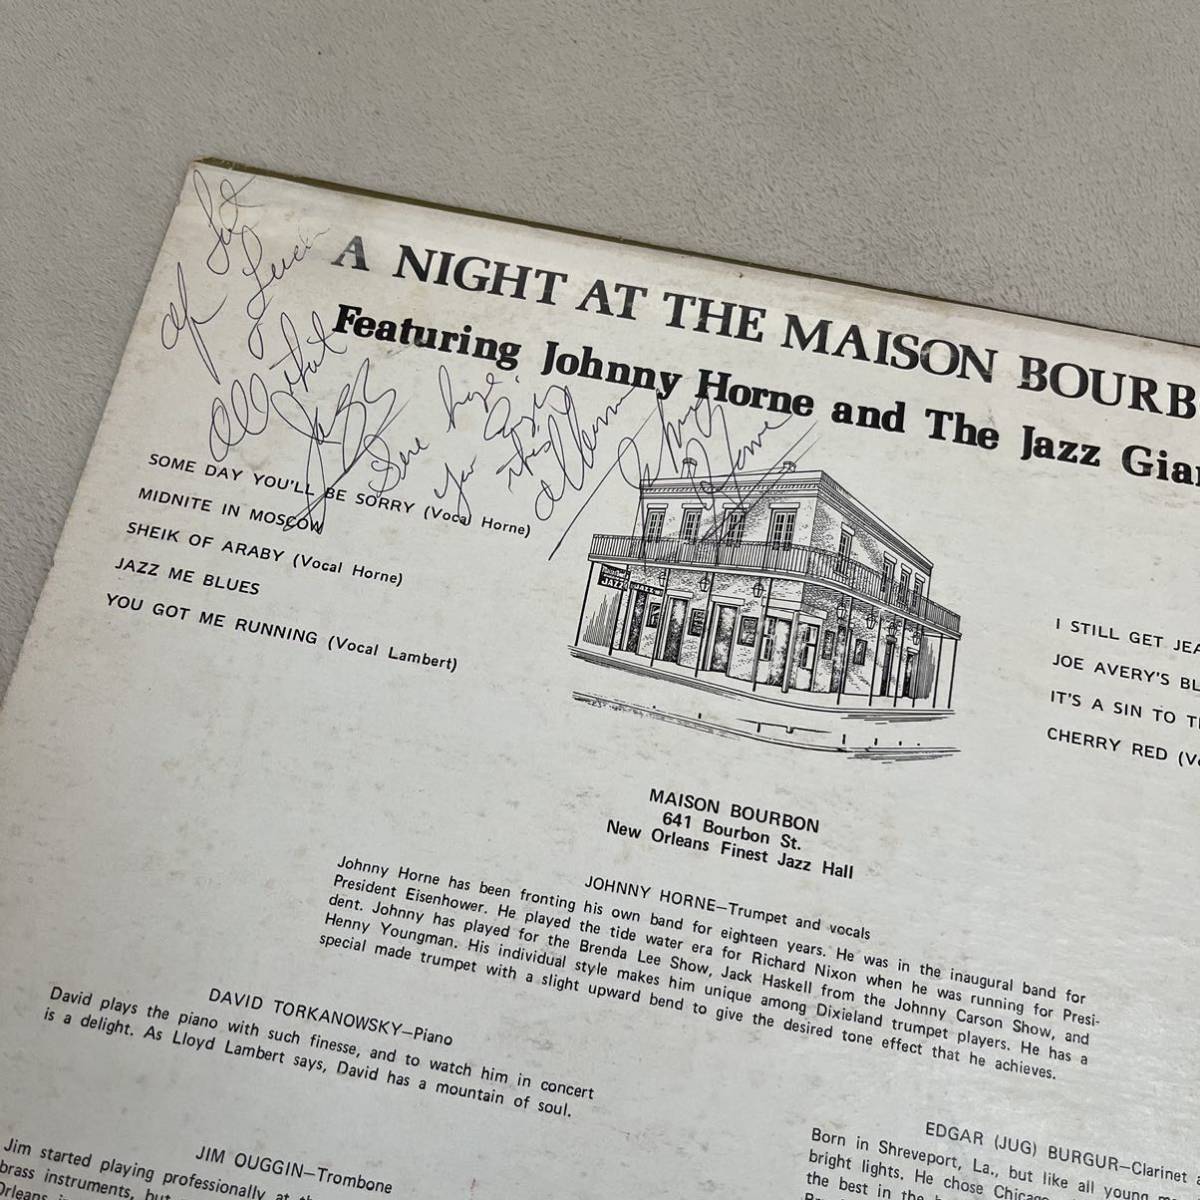 A NIGHT AT THE MAISON BOURB
Featuring Johnny Horne and The Jazz Gian
All that
Jazz
you
Johnny
Horne
SOME DAY YOU'LL BE SORRY (Vocal Horne)
MIDNITE IN MOSCOW
SHEIK OF ARABY (Vocal Horne)
JAZZ ME BLUES
YOU GOT ME RUNNING (Vocal Lambert)
JAZZ
I STILL GET JEA
JOE AVERY'S BL
IT'S A SIN TO T
CHERRY RED (Vo
MAISON BOURBON
641 Bourbon St.
New Orleans Finest Jazz Hall
JOHNNY HORNE—Trumpet and vocals
Johnny Horne has been fronting his own band for eighteen years. He was in the inaugural band for
President Eisenhower. He played the tide water era for Richard Nixon when he was running for Presi-
dent. Johnny has played for the Brenda Lee Show, Jack Haskell from the Johnny Carson Show, and
Henny Youngman. His individual style makes him unique among Dixieland trumpet players. He has a
special made trumpet with a slight upward bend to give the desired tone effect that he achieves.
DAVID TORKANOWSKY—Piano
David plays the piano with such finesse, and to watch him in concert
is a delight. As Lloyd Lambert says, David has a mountain of soul.
JIM OUGGIN—Trombone
Jim started playing professionally at
brass instruments, but
Orleans
EDGAR (JUG) BURGUR—Clarinet
Born in Shreveport, La., but like all young
bright lights. He chose Chicag
the best in the